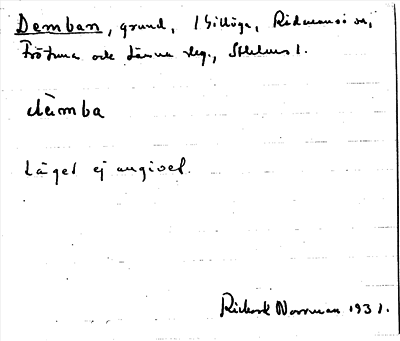 Demban, grund, 1 Gillöga, Ridmansö sn,
Frötuna och Länna slg., Sthlms l.
dämba
Läget ej angivet.
Richard Norrman 1931.